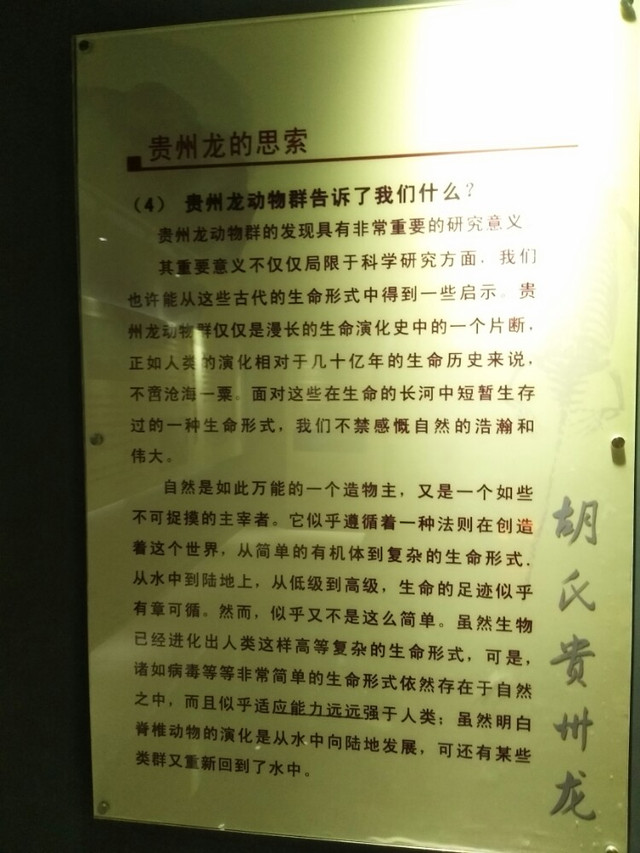 贵州龙的思索
（4） 贵州龙动物群告诉了我们什么？
贵州龙动物群的发现具有非常重要的研究意义
其重要意义不仅仅局限于科学研究方面，我们
也许能从这些古代的生命形式中得到一些启示。贵
州龙动物群仅仅是漫长的生命演化史中的一个片断，
正如人类的演化相对于几十亿年的生命历史来说，
不啻沧海一粟。面对这些在生命的长河中短暂生存
过的一种生命形式，我们不禁感慨自然的浩瀚和
伟大。
自然是如此万能的一个造物主，又是一个如些
不可捉摸的主宰者。它似乎遵循着一种法则在创造
着这个世界，从简单的有机体到复杂的生命形式，
从水中到陆地上，从低级到高级，生命的足迹似乎
有章可循。然而，似乎又不是这么简单。虽然生物
已经进化出人类这样高等复杂的生命形式，可是，
诸如病毒等等非常简单的生命形式依然存在于自然
之中，而且似乎适应能力远远强于人类；虽然明白
脊椎动物的演化是从水中向陆地发展，可还有某些
类群又重新回到了水中。
胡氏贵州龙